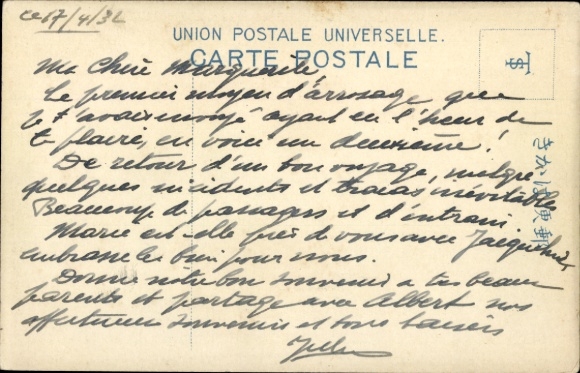 ce 17/4/32
UNION POSTALE UNIVERSELLE.
CARTE POSTALE
Ma Chère Marguerite,
Le premier moyen d'arrosage que
je t'avais envoyé ayant eu l'heur de
te plaire, en voici un deuxième!
De retour d'un bon voyage, malgré
quelques incidents et tracas inévitables
Beaucoup de passagers et d'entrain.
Marie est-elle près de vous avec Jacqueline
embrasse les bien pour nous.
Donne notre bon souvenir a tes beaux
parents et partage avec Albert nos
affectueux souvenirs et bons baisers
きか は便郵